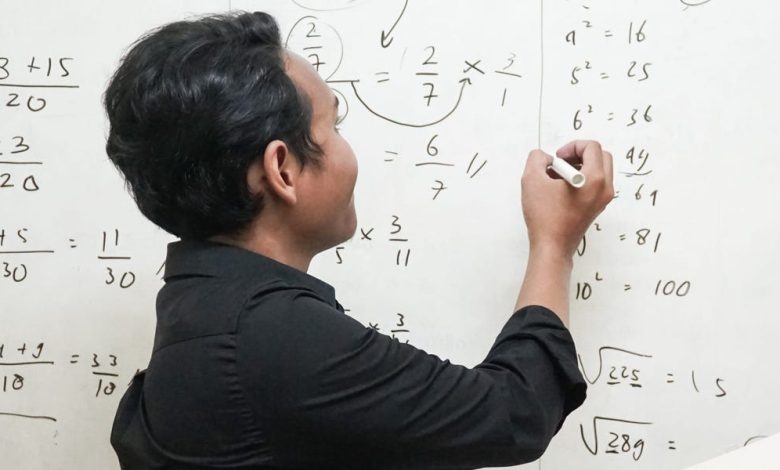 3 + 15
20
3
20
+ 5
30
= 11
30
+ 9
10
= 33
10
2
7
= 2
7
× 3
1
= 6
7
5
× 3
11
× 3
4² = 16
5² = 25
6² = 36
= 64
² = 81
10² = 100
√225 = 15
√289 =